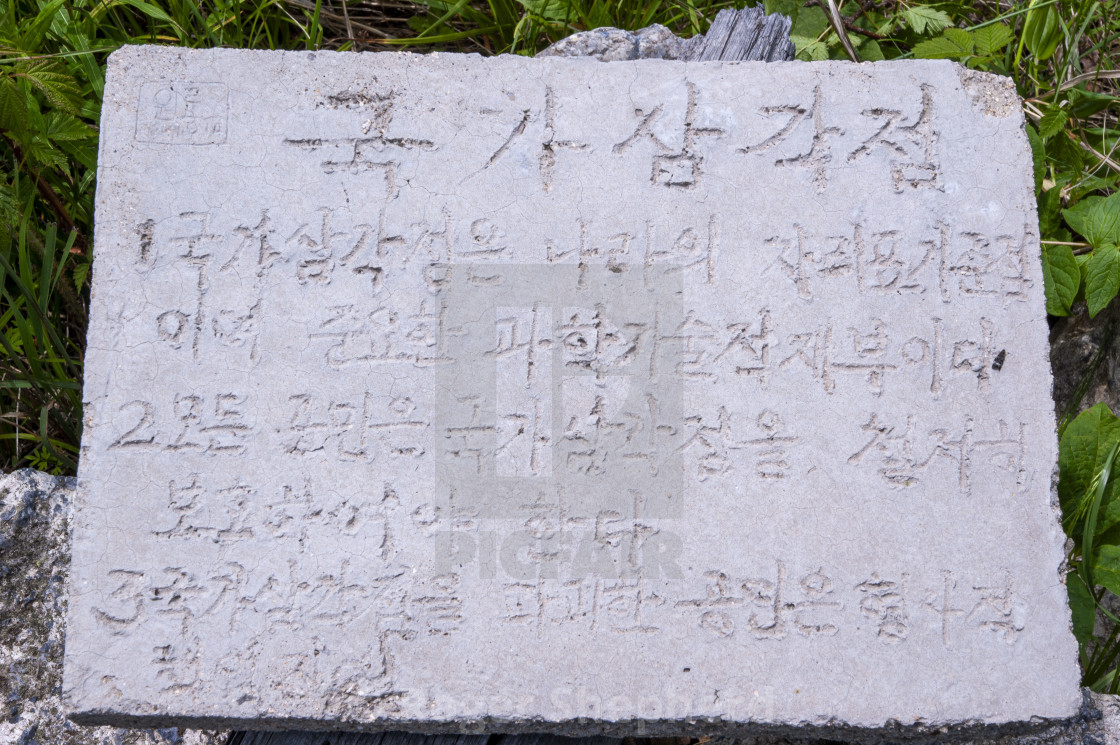 국가삼각점
1 국가삼각점은 나라의 자리표기준점
이며 중요한 과학기술적재부이다
2 모든 공민은 국가삼각점을 철저히
보호하여야 한다
3 국가삼각점을 파괴한 공민은 형사적
PICFAIR
Roger Shepherd